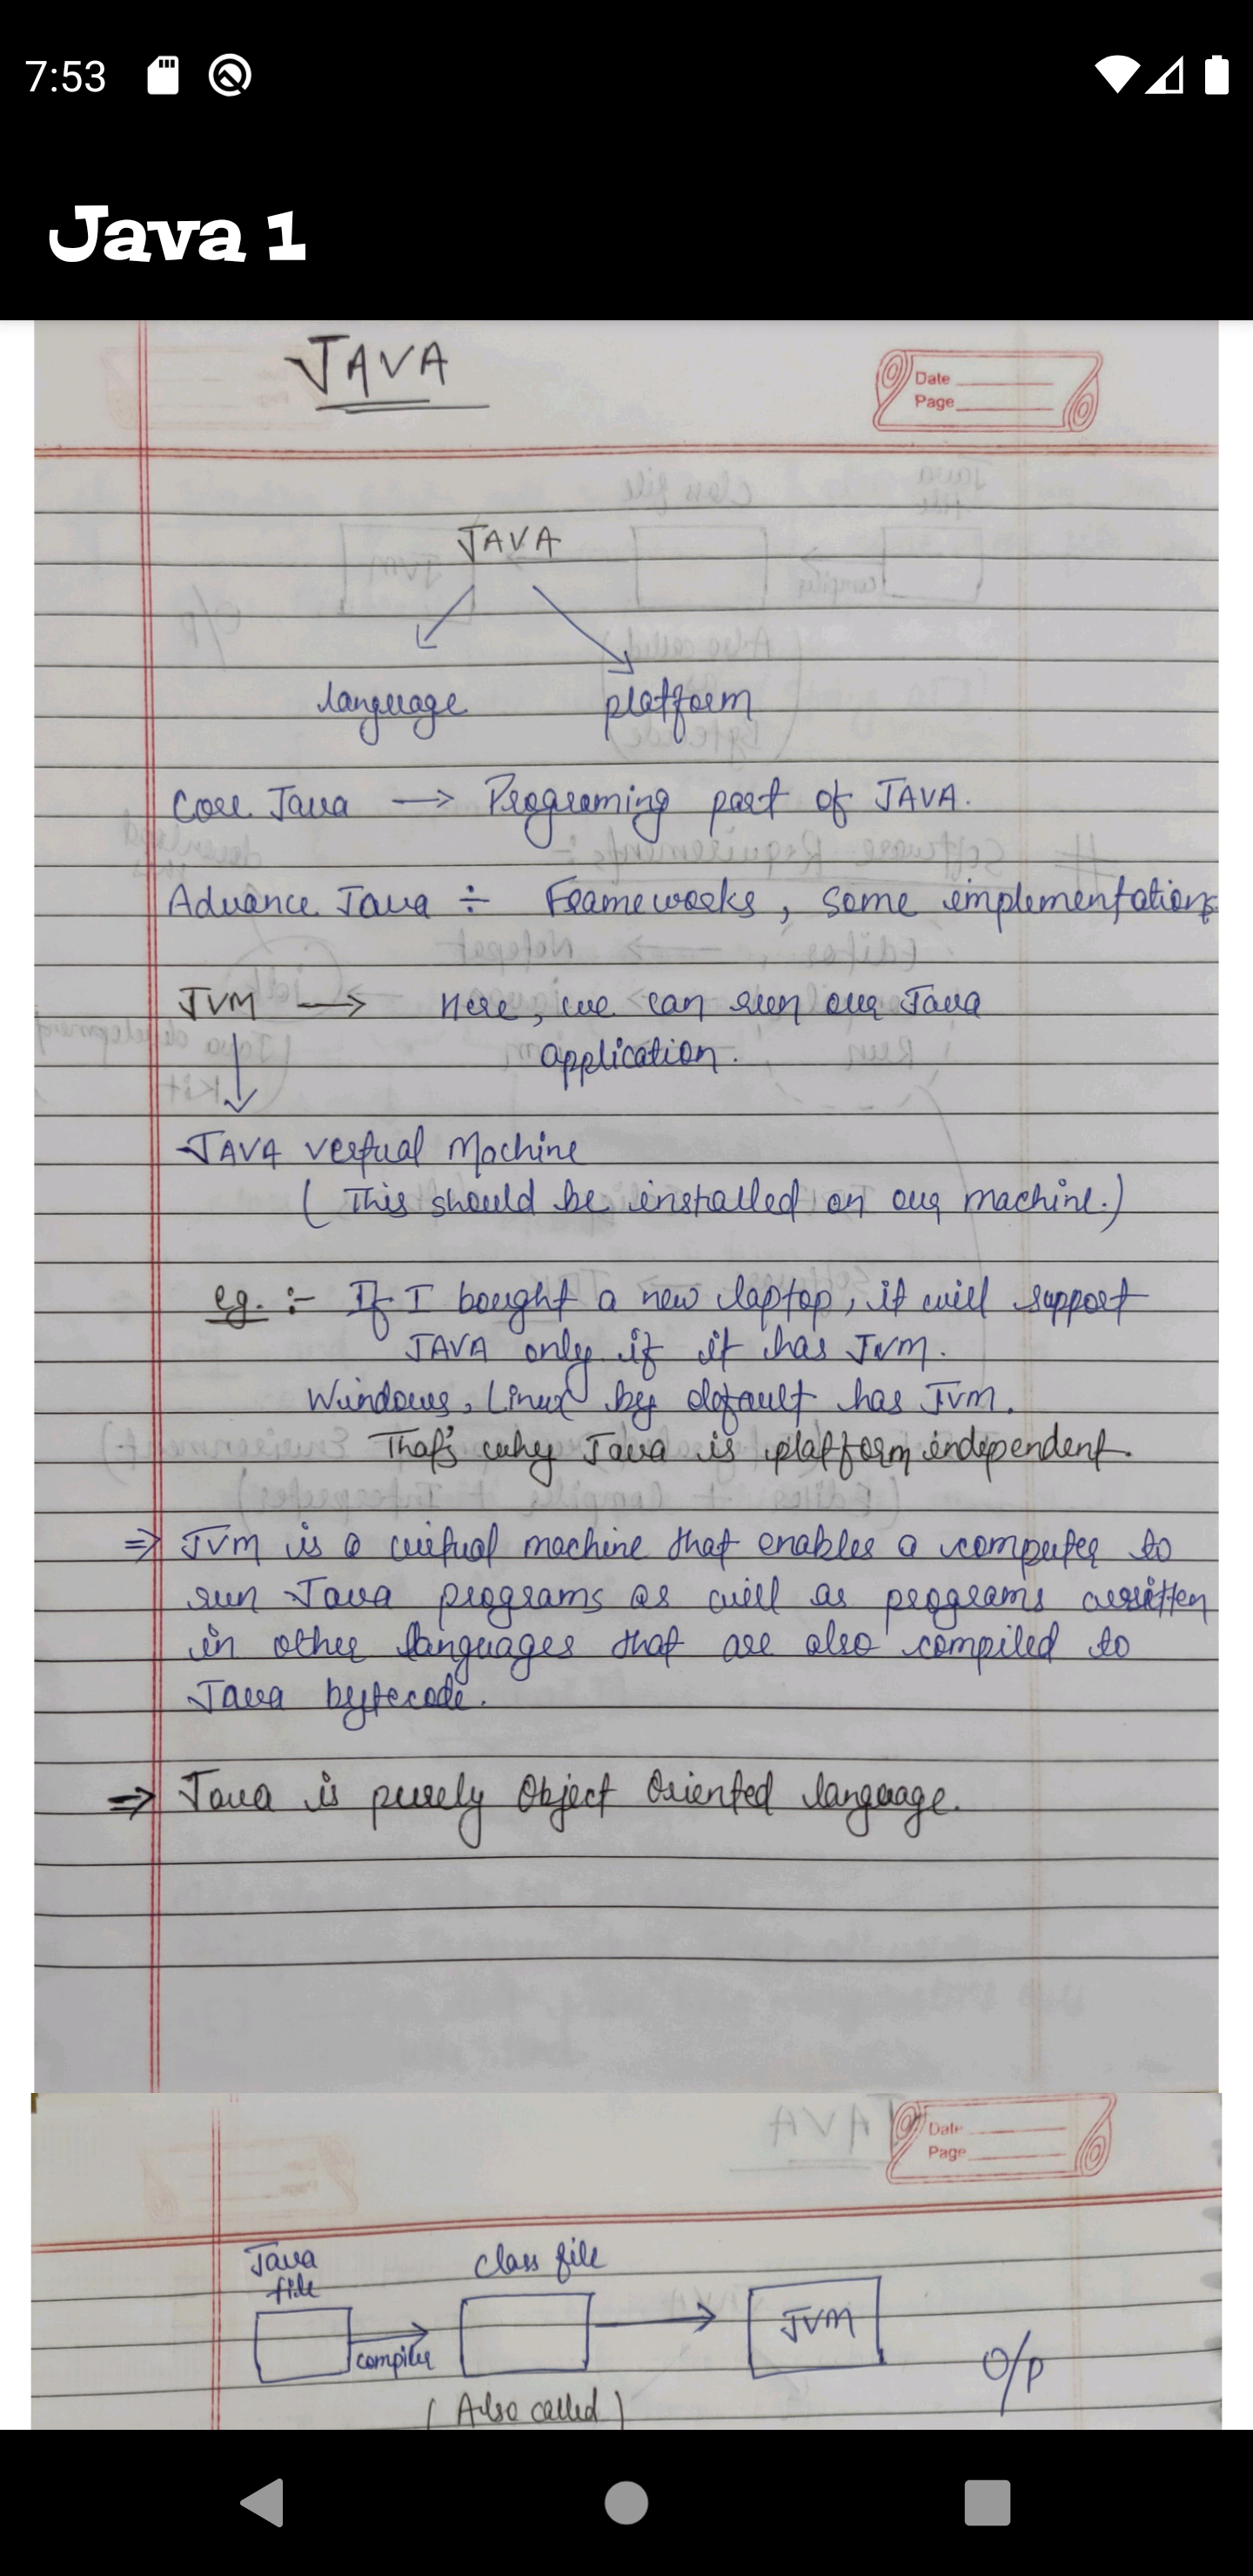 7:53
Java 1
JAVA
Date
Page
JAVA
language platform
Core Java → Programing part of JAVA.
Advance Java ÷ Frameworks, some implementations
JVM → Here, we can run our Java
application.
JAVA vertual Machine
( This should be installed on our machine.)
eg. :- If I bought a new laptop, it will support
JAVA only if it has JVM.
Windows, Linux by default has JVM.
That's why Java is platform independent.
⇒ JVM is a virtual machine that enables a computer to
run Java programs as will as programs written
in other languages that are also compiled to
Java bytecode.
⇒ Java is purely Object Oriented language.
Date
Page
Java
file
class file
compiler
JVM
O/p
( Also called )